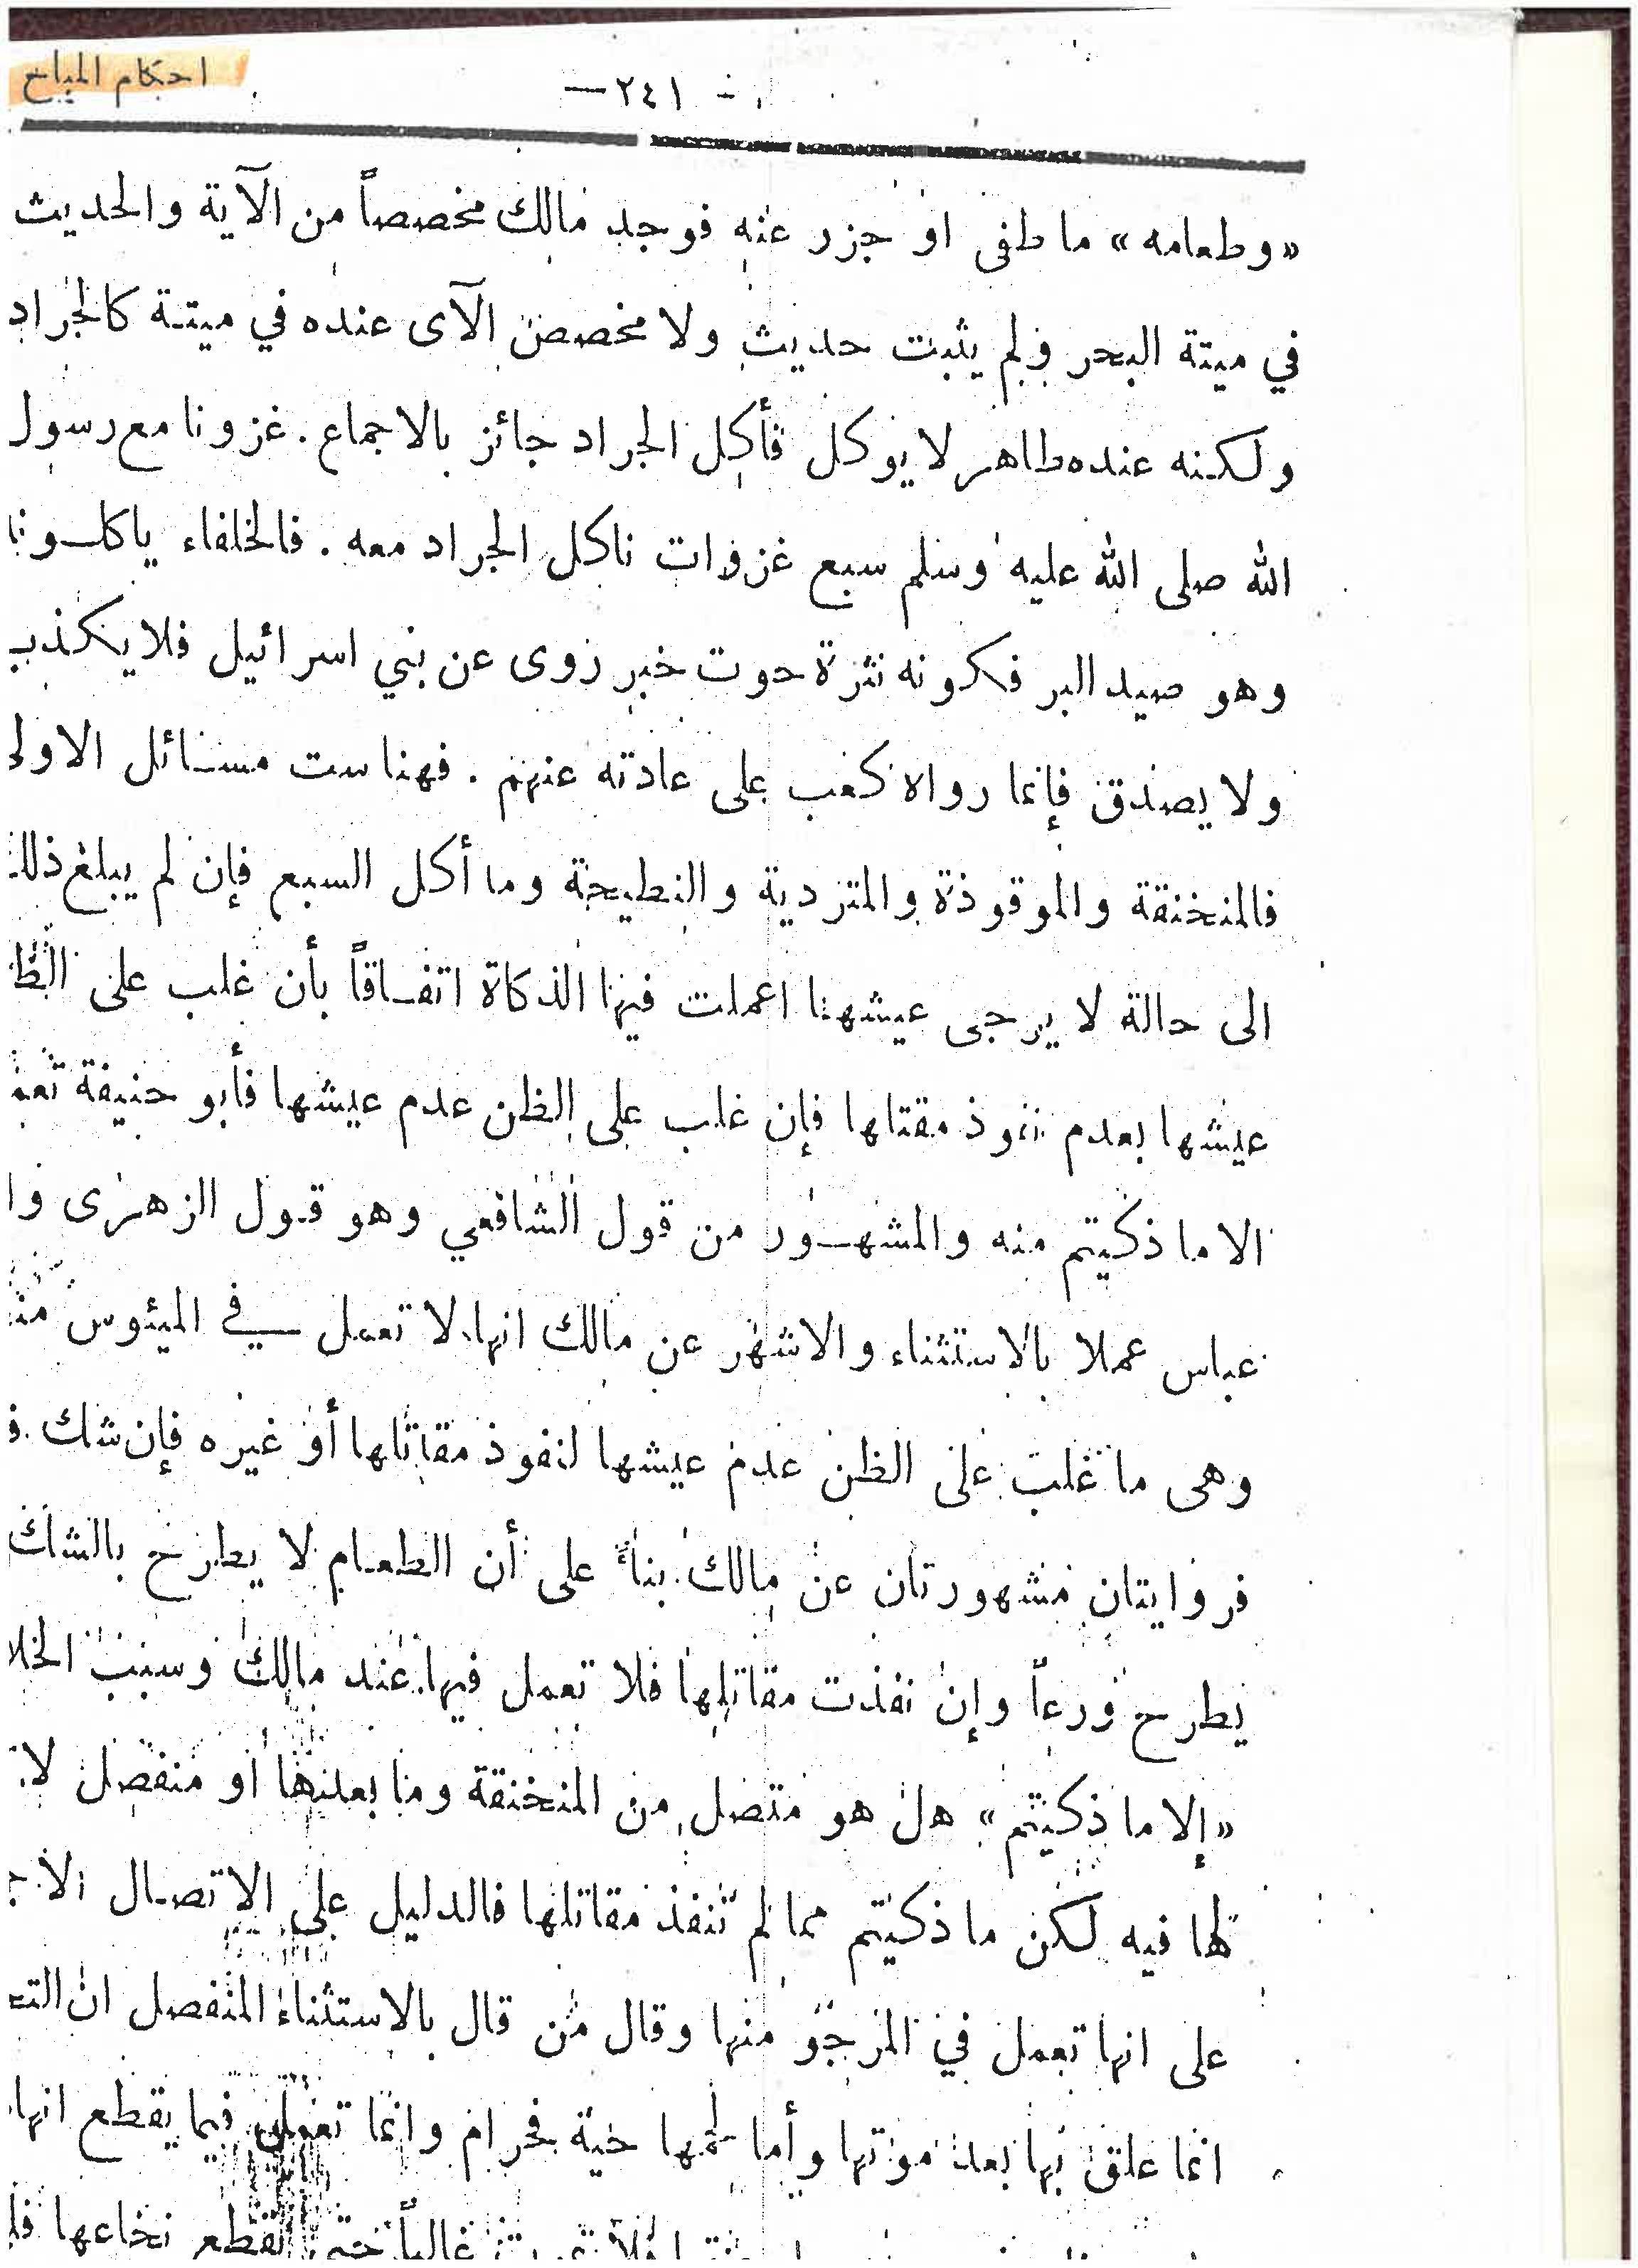 احكام المباح
— ٢٤١ —
«وطعامه» ما طفى او جزر عنه فوجد مالك مخصصاً من الآية والحديث
في ميتة البحر ولم يثبت حديث ولا مخصص الآى عنده في ميتة كالجراد
ولكنه عنده طاهر لا يوكل فأكل الجراد جائز بالاجماع. غزونا مع رسول
الله صلى الله عليه وسلم سبع غزوات ناكل الجراد معه. فالخلفاء ياكلونا
وهو صيد البر فكونه نثرة حوت خبر روى عن بني اسرائيل فلا يكذب
ولا يصدق فإنما رواه كعب على عادته عنهم. فهنا ست مسائل الاولى
فالمنخنقة والموقوذة والمتردية والنطيحة وما أكل السبع فإن لم يبلغ ذلك
الى حالة لا يرجى عيشها اعملت فيها الذكاة اتفاقاً بأن غلب على الظ
عيشها بعدم نفوذ مقتلها فإن غلب على الظن عدم عيشها فأبو حنيفة تعم
الا ما ذكيتم منه والمشهور من قول الشافعي وهو قول الزهرى وا
عباس عملا بالاستثناء والاشهر عن مالك انها لا تعمل في الميئوس منه
وهى ما غلب على الظن عدم عيشها لنفوذ مقاتلها أو غيره فإن شك ف
فروايتان مشهورتان عن مالك بناءً على أن الطعام لا يطرح بالشك
يطرح ورعاً وإن نفذت مقاتلها فلا تعمل فيها عند مالك وسبب الخلا
«إلا ما ذكيتم» هل هو متصل من المنخنقة وما بعدها أو منفصل لا
لها فيه لكن ما ذكيتم مما لم تنفذ مقاتلها فالدليل على الاتصال الاج
على انها تعمل في المرجو منها وقال من قال بالاستثناء المنفصل ان التح
انما علق بها بعد موتها وأما لحمها حية فحرام وانما تعمل فيما يقطع انها
غالباً حتى تقطع نخاعها فلا